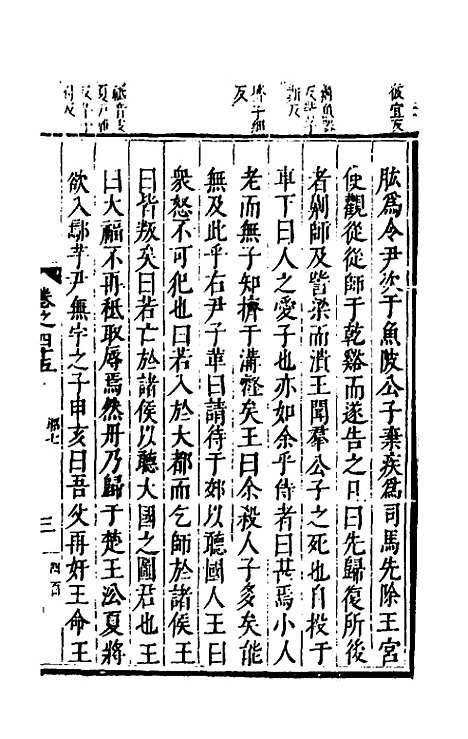 肱為令尹次于魚陂公子棄疾為司馬先除王宮
使觀從從師于乾谿而遂告之且曰先歸復所後
者劓師及訾梁而潰王聞羣公子之死也自投于
車下曰人之愛子也亦如余乎侍者曰甚焉小人
老而無子知擠于溝壑矣王曰余殺人子多矣能
無及此乎右尹子革曰請待于郊以聽國人王曰
衆怒不可犯也曰若入於大都而乞師於諸侯王
曰皆叛矣曰若亡於諸侯以聽大國之圖君也王
曰大福不再秪取辱焉然丹乃歸于楚王沿夏將
欲入鄢芋尹無宇之子申亥曰吾父再奸王命王
彼宜反
擠子細反
秪音支
卷之四十五
昭七
三